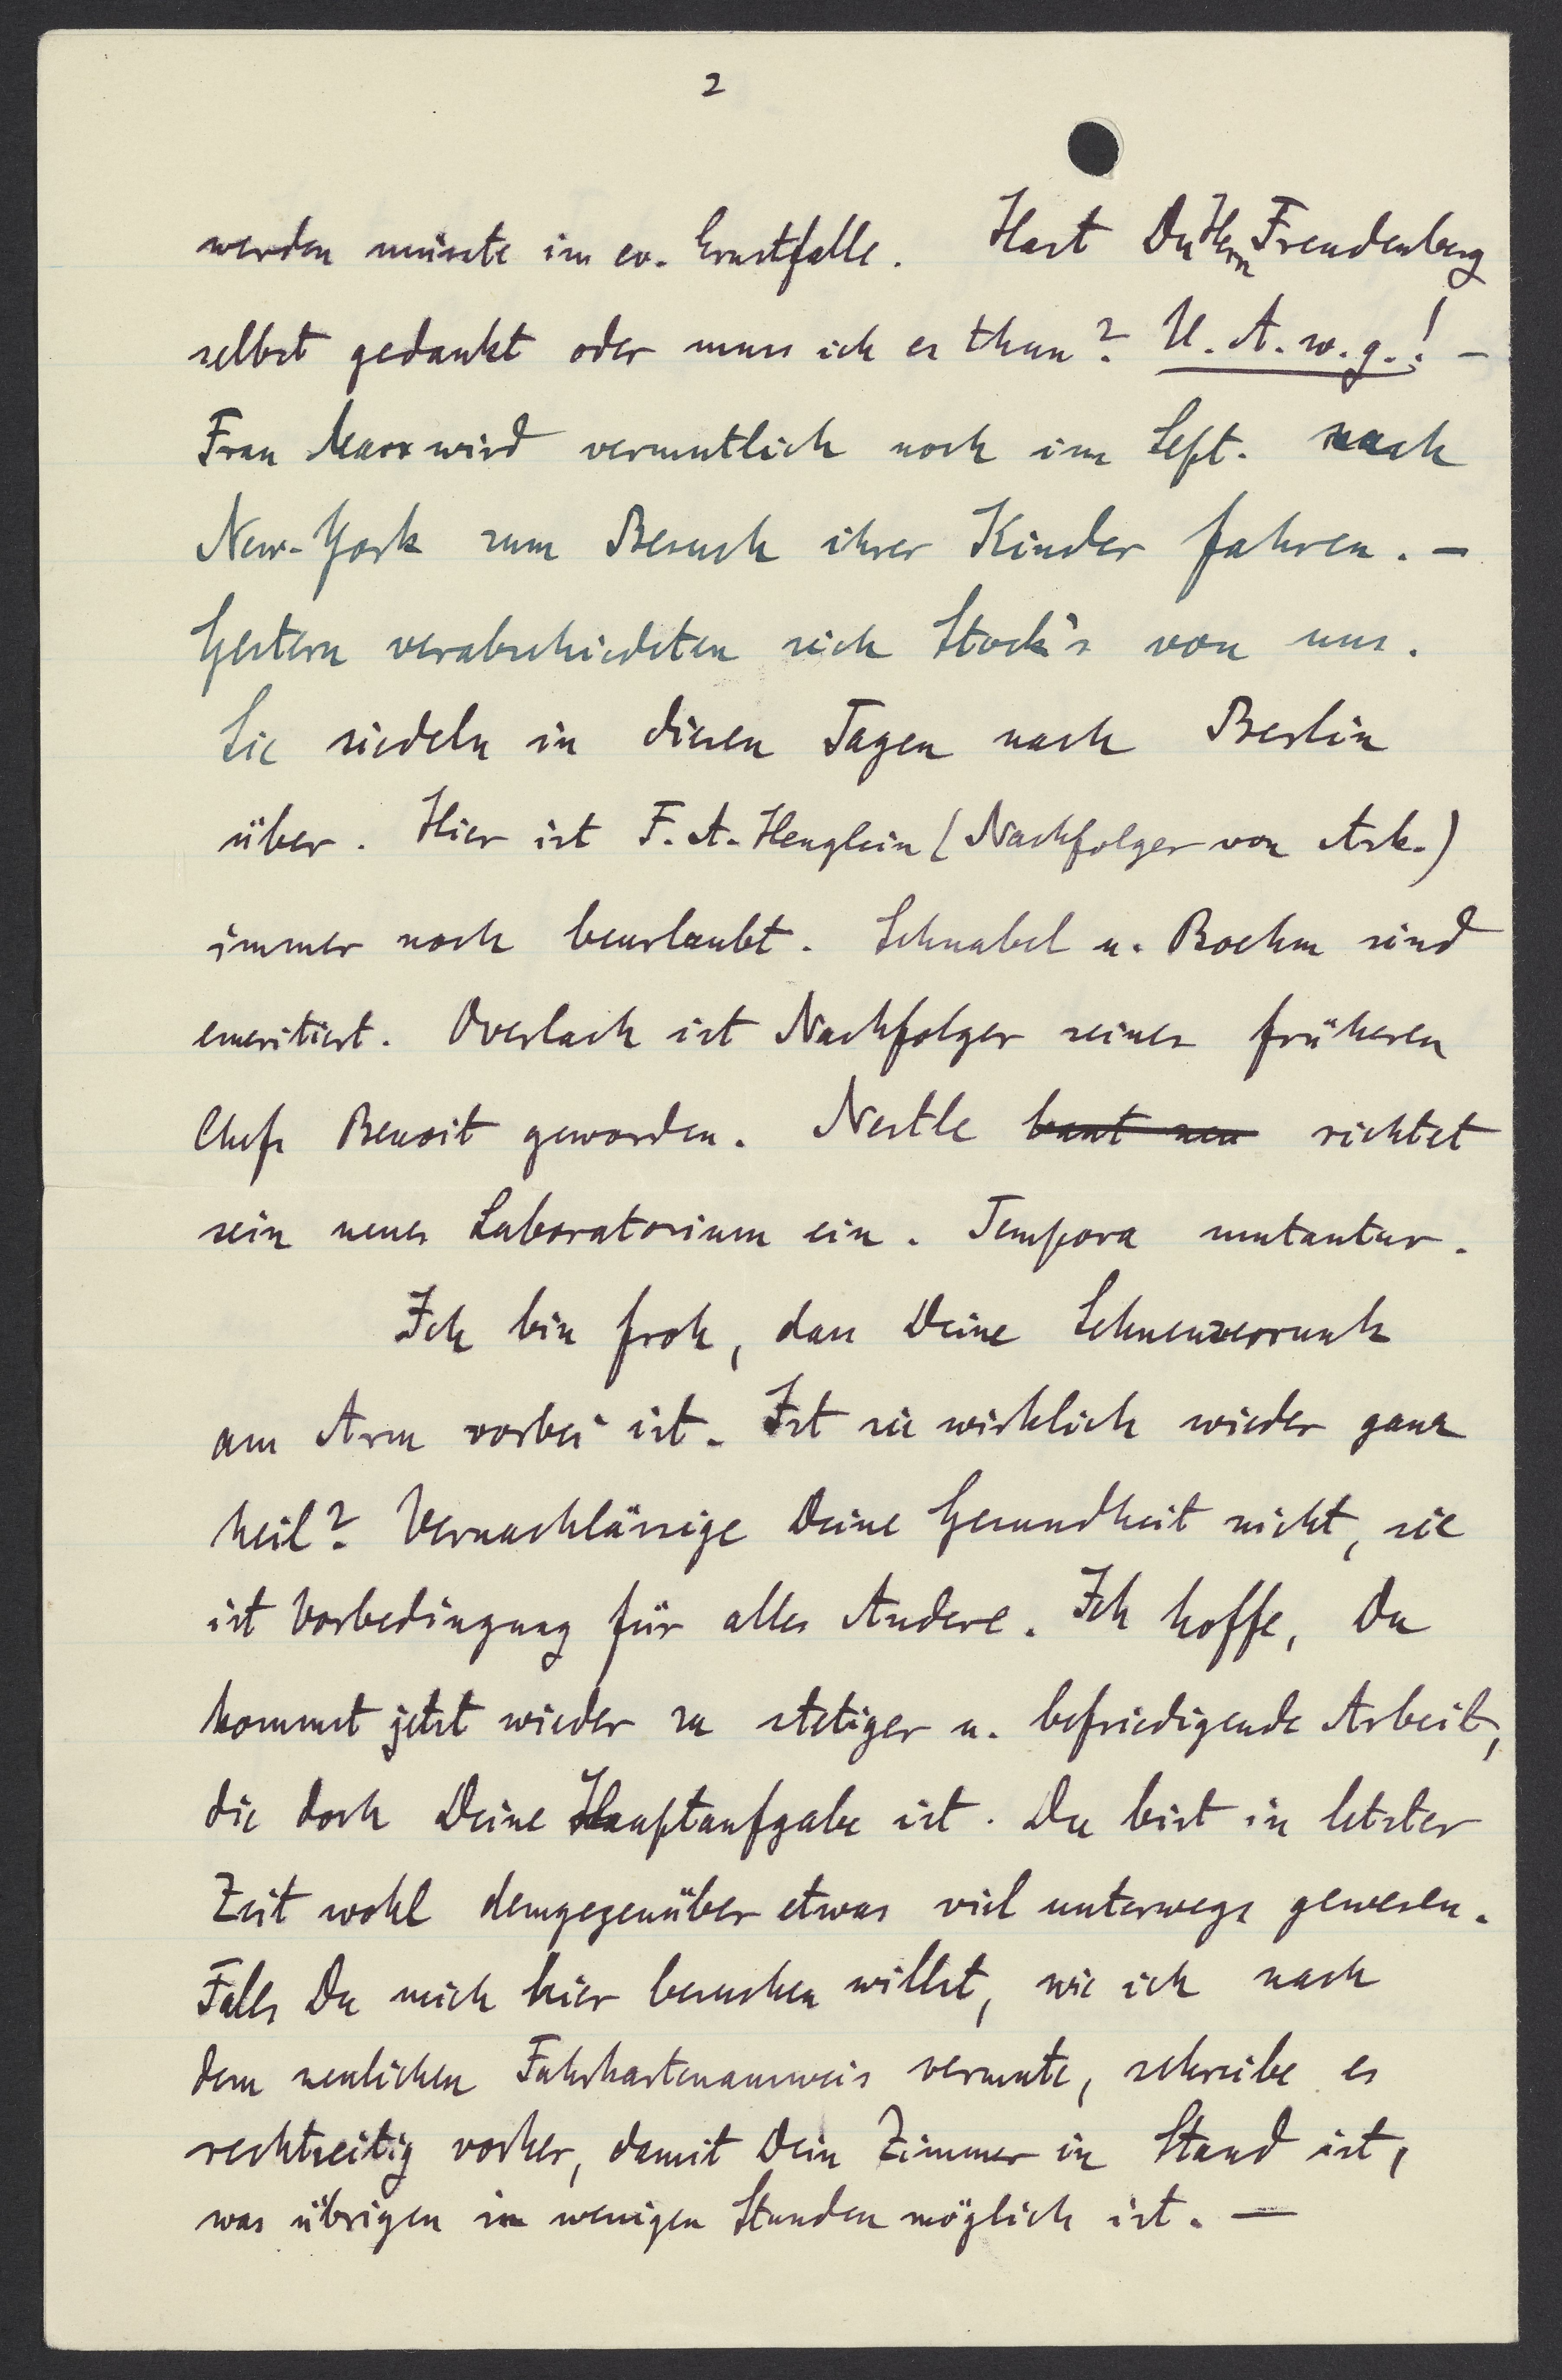 2
werden müsste im ev. Ernstfalle. Hast Du Herrn Freudenberg
selbst gedankt oder muss ich es thun? U. A. w. g.! –
Frau Marx wird vermutlich noch im Sept. nach
New-York zum Besuch ihrer Kinder fahren. –
Gestern verabschiedeten sich Stock's von uns.
Sie siedeln in diesen Tagen nach Berlin
über. Hier ist F. A. Henglein (Nachfolger von Ask.)
immer noch beurlaubt. Schnabel u. Boehm sind
emeritiert. Overlach ist Nachfolger seines früheren
Chefs Benoit geworden. Nestle baut neu richtet
sein neues Laboratorium ein. Tempora mutantur.
Ich bin froh, dass Deine Sehnenzerrunh
am Arm vorbei ist. Ist sie wirklich wieder ganz
heil? Vernachlässige Deine Gesundheit nicht, sie
ist Vorbedingung für alles Andere. Ich hoffe, Du
kommst jetzt wieder zu stetiger u. befriedigende Arbeit,
die doch Deine Hauptaufgabe ist. Du bist in letzter
Zeit wohl demgegenüber etwas viel unterwegs gewesen.
Falls Du mich hier besuchen willst, wie ich nach
dem neulichen Fahrkartenausweis vermute, schreibe es
rechtzeitig vorher, damit Dein Zimmer in Stand ist,
was übrigen in wenigen Stunden möglich ist. —